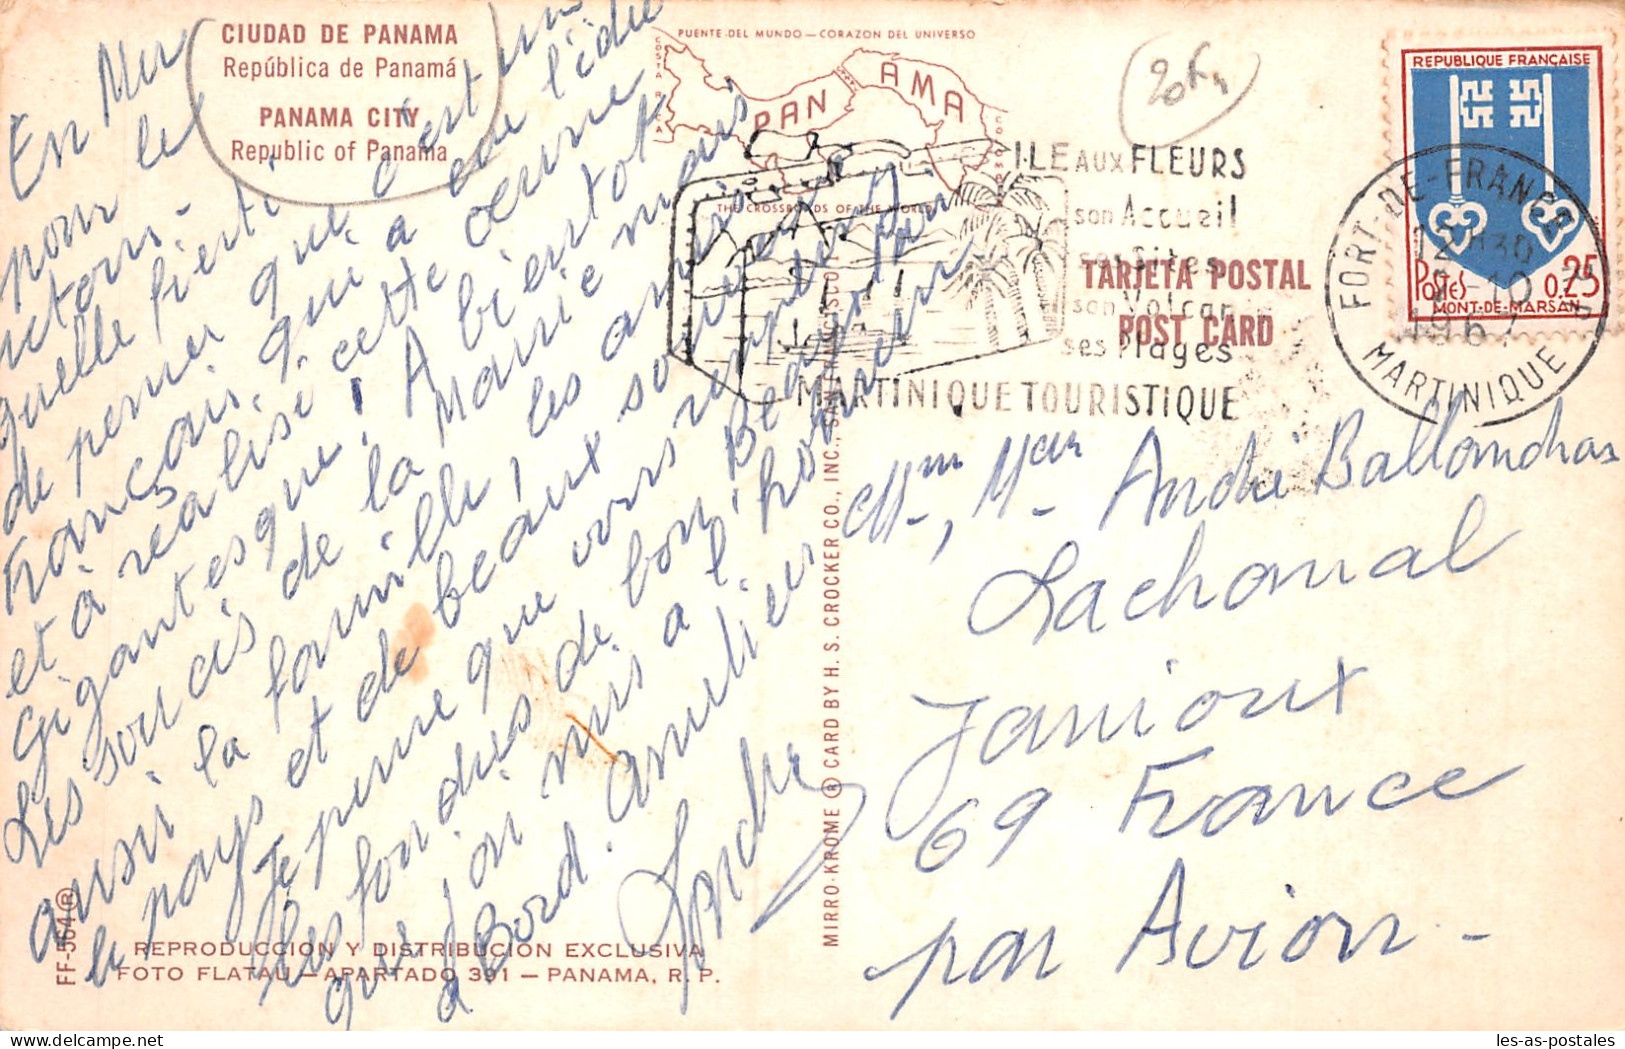 CIUDAD DE PANAMA
República de Panamá
PANAMA CITY
Republic of Panama
PUENTE DEL MUNDO — CORAZON DEL UNIVERSO
COSTA RICA
PANAMA
COLOMBIA
THE CROSSROADS OF THE WORLD
20F
REPUBLIQUE FRANÇAISE
POSTES 0.25
MONT-DE-MARSAN
FORT-DE-FRANCE
12H30
10
1967
MARTINIQUE
ILE AUX FLEURS
son Accueil
ses Sites
son Volcan
ses Plages
MARTINIQUE TOURISTIQUE
TARJETA POSTAL
POST CARD
En Mer
pour le
retour.
quelle fierté
de penser que c'est un
Français qui a eu l'idée
et a réalisé cette oeuvre
Gigantesque! A bientôt
Les soucis de la Mairie mais
aussi la famille, les amis
le pays et de beaux souvenirs
Je pense que vous
les fondies de bon Beaujolais
que l'on mis à l'honneur
a Bord. Amitiés
André
Mme, Mr André Ballandras
Lachanal
Janioux
69 France
par Avion -
MIRRO-KROME ® CARD BY H. S. CROCKER CO., INC., SAN FRANCISCO
FF-564 ®
REPRODUCCION Y DISTRIBUCION EXCLUSIVA
FOTO FLATAU — APARTADO 391 — PANAMA, R. P.
les-as-postales